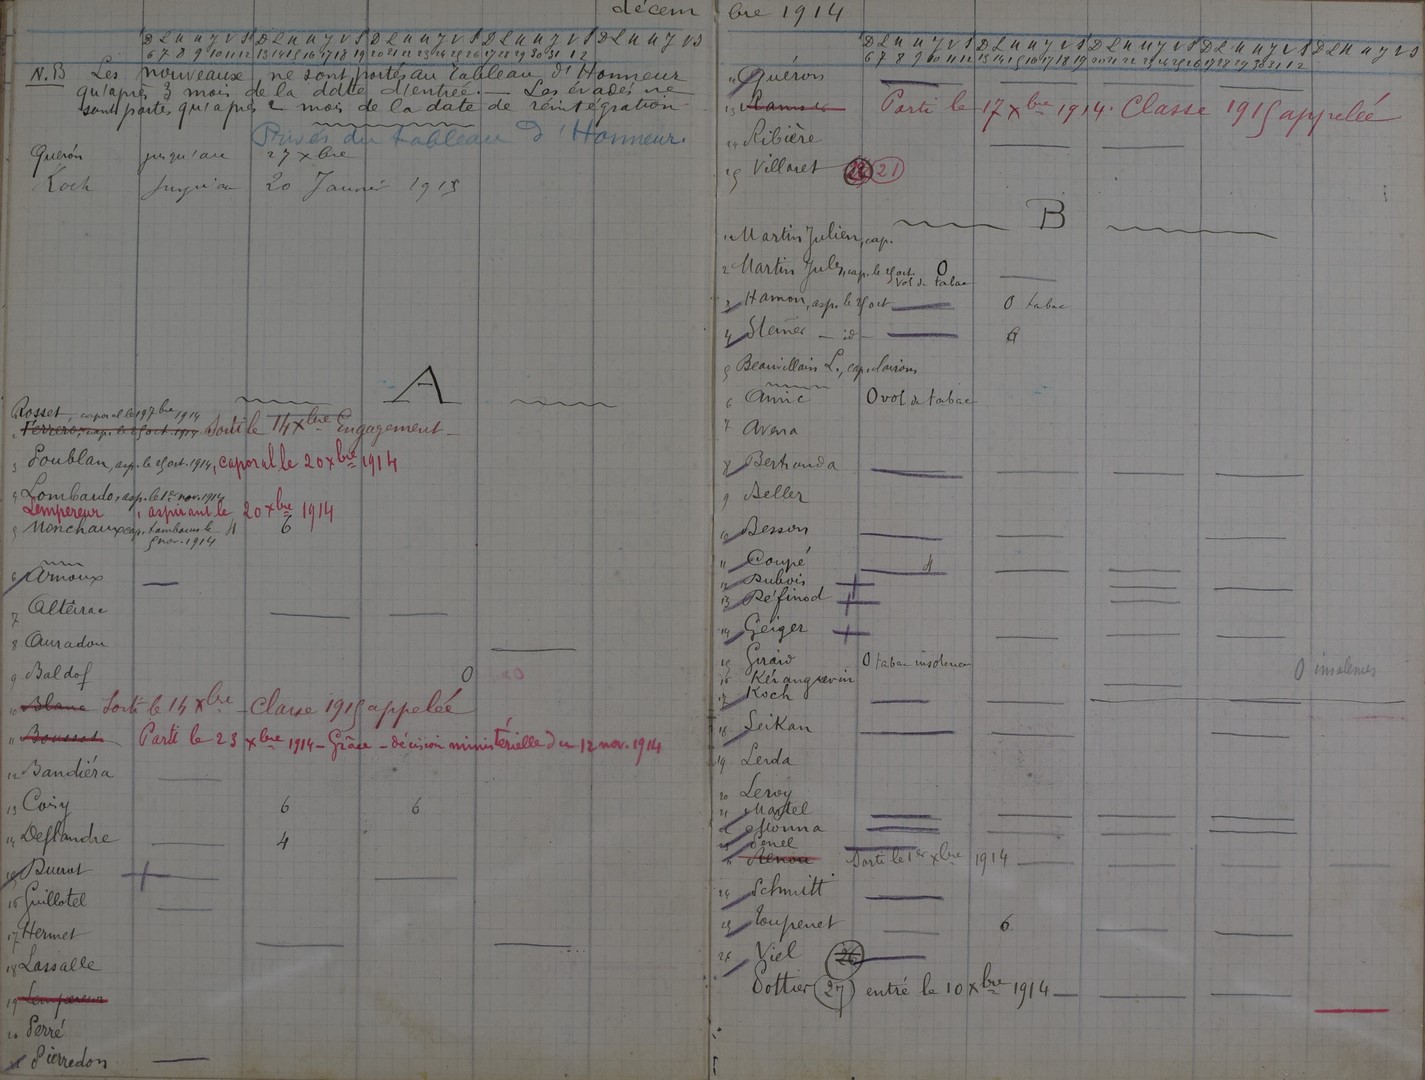 décembre 1914
D L M M J V S D L M M J V S D L M M J V S D L M M J V S D L M M J V S
6 7 8 9 10 11 12 13 14 15 16 17 18 19 20 21 22 23 24 25 26 27 28 29 30 31 1 2
N.B Les nouveaux, ne sont portés au Tableau d'Honneur
qu'après 3 mois de la date d'entrée. — Les évadés ne
sont portés qu'après 2 mois de la date de réintégration
Privés du tableau d'Honneur.
Quéron jusqu'au 27 xbre
Koch jusqu'au 20 Janvier 1915
A
Rosset, caporal le 19 7bre 1914
2 Ferrero, cap. le 25 oct. 1914 Sorti le 14 xbre Engagement
3 Loublan, asp. le 25 oct. 1914, caporal le 20 xbre 1914
4 Lombardo, asp. le 1er nov. 1914
Lempereur, aspirant le 20 xbre 1914
5 Menchaux cap. tambours le 4 6
5 nov. 1914
6 Arnoux
7 Altérac
8 Auradou
9 Baldof 0
10 Blanc Sorti le 14 xbre Classe 1915 appelée
11 Bousset Parti le 23 xbre 1914 – Grâce – décision ministérielle du 12 nov. 1914
12 Bandiéra
13 Coisy 6 6
14 Deflandre 4
15 Ducrot
16 Guillotel
17 Hermet
18 Lassalle
19 Lempereur
20 Perré
21 Pierredon
D L M M J V S D L M M J V S D L M M J V S D L M M J V S D L M M J V S
6 7 8 9 10 11 12 13 14 15 16 17 18 19 20 21 22 23 24 25 26 27 28 29 30 31 1 2
Quéron
Parti le 17 xbre 1914. Classe 1915 appelée
Ribière
Villaret 22 21
B
1 Martin Julien, cap.
2 Martin Jules, cap. le 25 oct. 0
vol de tabac
3 Hamon, asp. le 25 oct 0 tabac
4 Steiner – id – 6
5 Beauvillain L., cap. clairons
6 Amic 0 vol de tabac
7 Avena
8 Bertranda
9 Beller
10 Besson
11 Coupé 4
12 Dubois
13 Définod
14 Geiger
15 Giraid 0 tabac insolence 0 insolences
16 Kéranguevin
17 Koch
18 Leikan
19 Lerda
20 Leroy
21 Martel
Monna
Penel
Renou Sorti le 1er xbre 1914
24 Schmitt
25 Toupenet 6
26 Viel 26
Pottier 27 entré le 10 xbre 1914